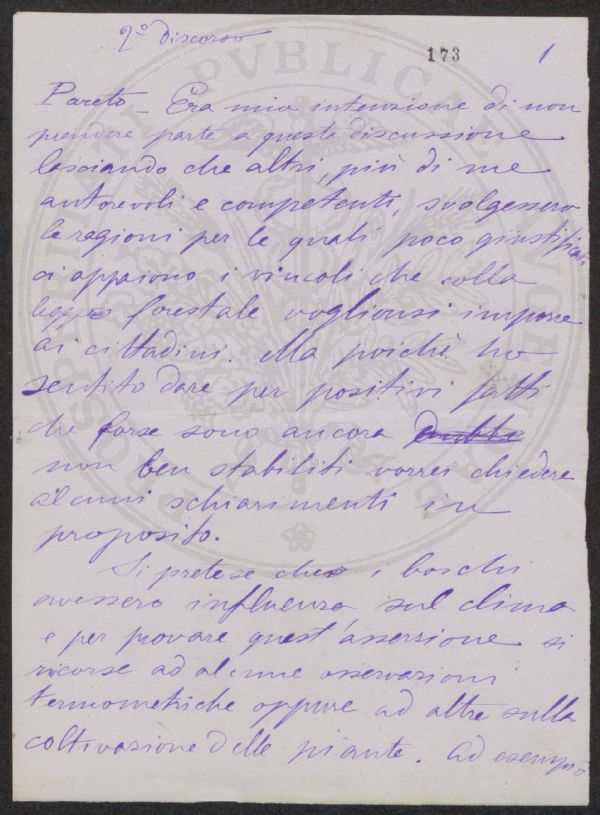 2º Discorso
173
1
Pareto – Era mia intenzione di non
prendere parte a questa discussione
lasciando che altri, più di me
autorevoli e competenti, svolgessero
le ragioni per le quali poco giustificati
ci appaiono i vincoli che colla
legge forestale voglionsi imporre
ai cittadini. Ma poichè ho
sentito dare per positivi fatti
che forse sono ancora
non ben stabiliti vorrei chiedere
alcuni schiarimenti in
proposito.
Si pretese che i boschi
avessero influenza sul clima
e per provare quest'asserzione si
ricorse ad alcune osservazioni
termometriche oppure ad altre sulla
coltivazione delle piante. Ad esempio